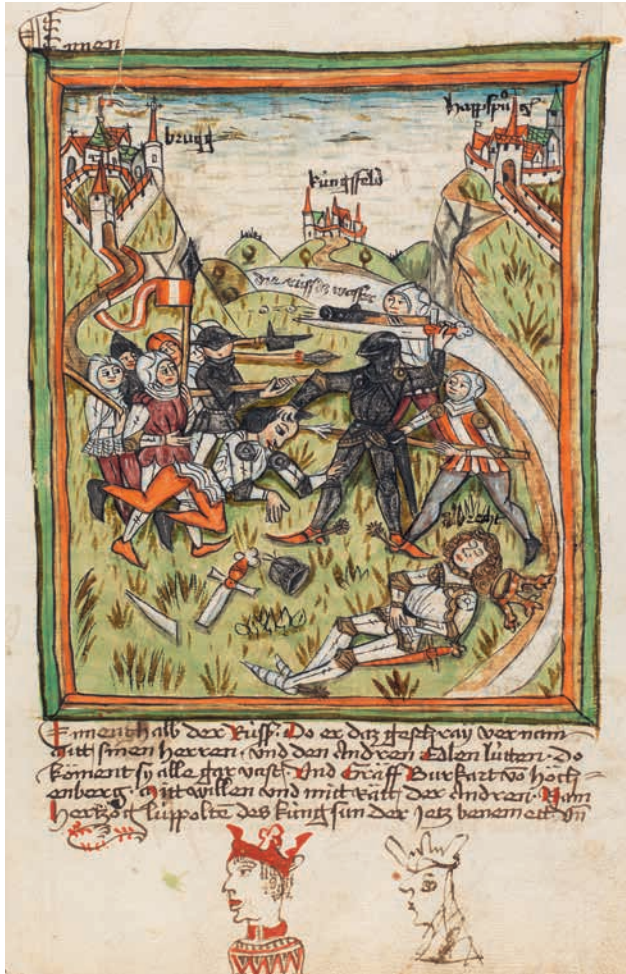 Ennen
brugg
happspurg
küngsfeld
die rüss daz wasser
albrecht
Ennenthalb der Rüss. Do er daz geschray vernam
mitt sinen herren. vnd den andren Edlen lütten. Do
koment sy alle gar vast. Vnd Graff Burkart vo höch=
enberg. mitt willen vnd mitt rätt der andren. Nam
hertzog lüppolte des küng sun der jetz benemett. Vn